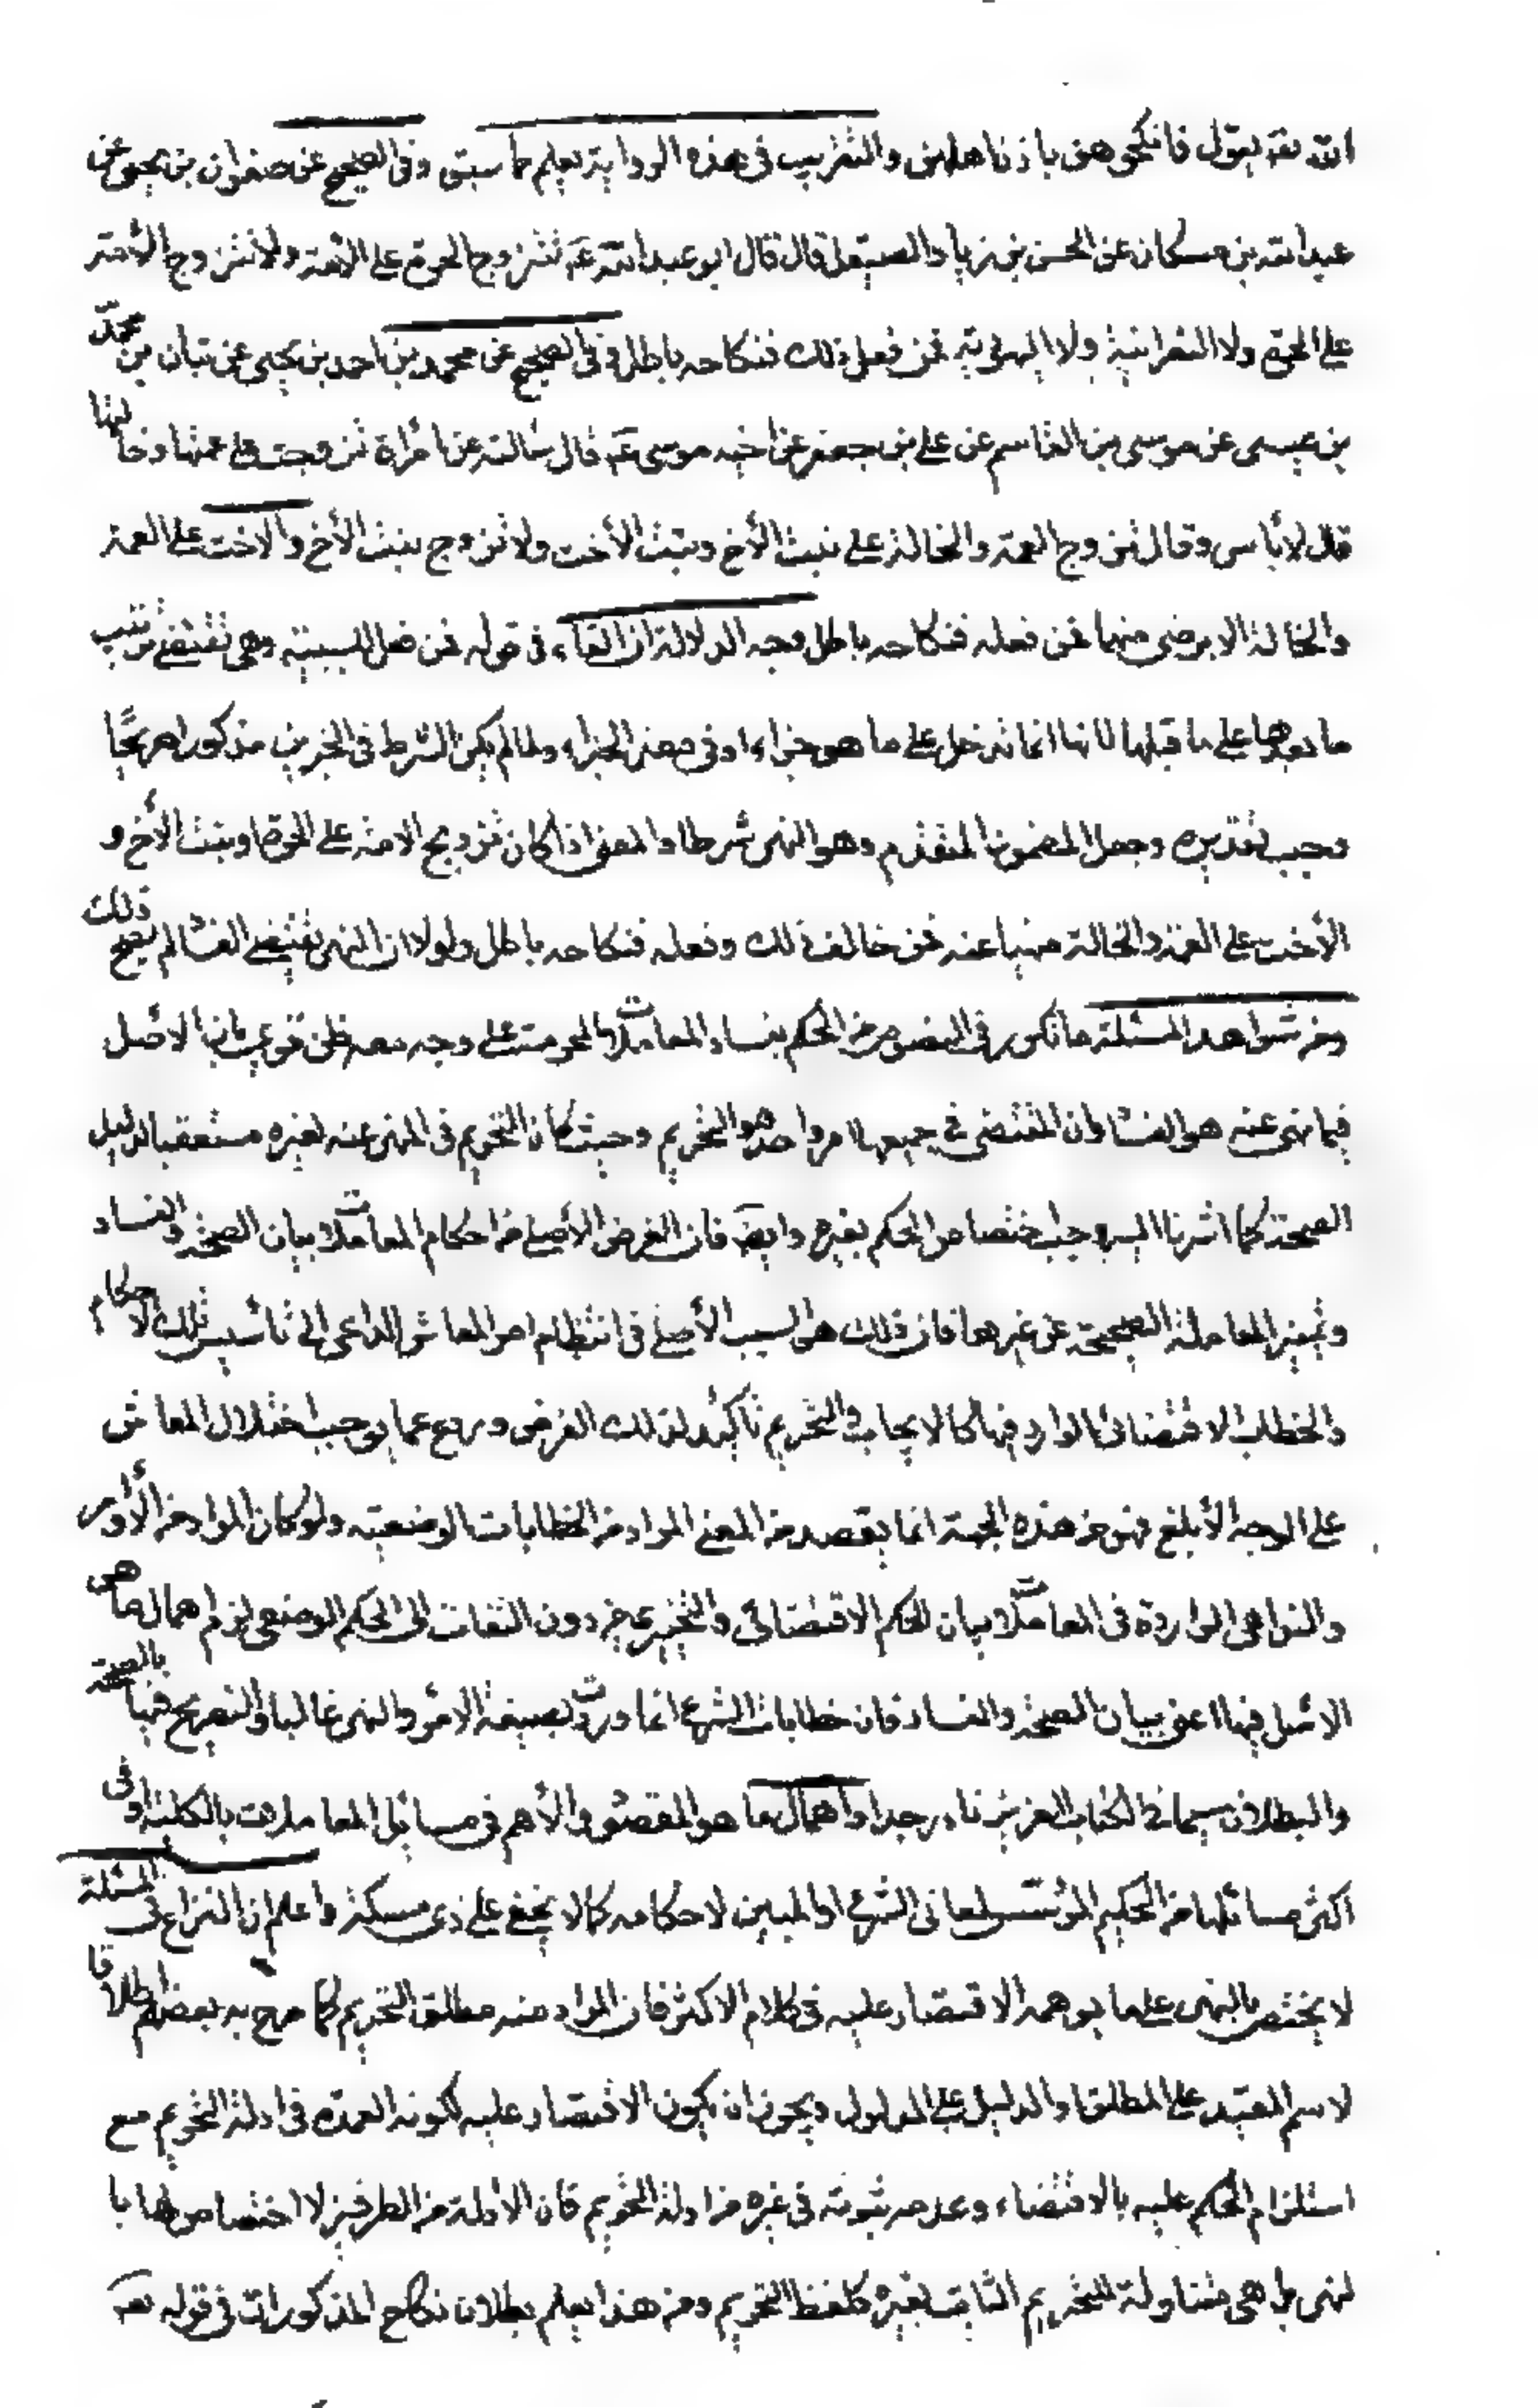 الله تعه يقول فانكحوهن باذن اهلهن والتقريب في هذه الرواية يعلم مما سبق وفى الصحيح عن صفوان بن يحيى عن
عبد الله بن مسكان عن الحسن بن زياد الصيقل قال قال ابو عبد الله عه تتزوج الحرة على الامة ولا تتزوج الامة
على الحرة ولا النصرانية ولا اليهودية فمن فعل ذلك فنكاحه باطل وفى الصحيح عن محمد بن احمد بن يحيى عن بنان بن محمد
بن عيسى عن موسى بن القاسم عن على بن جعفر عن اخيه موسى عه قال سألته عن امرأة تزوجت على عمتها وخالتها
قال لا بأس وقال تزوج العمة والخالة على بنت الأخ وبنت الأخت ولا تزوج بنت الأخ والاخت على العمة
والخالة الا برضى منهما فمن فعله فنكاحه باطل وجه الدلالة ان الفاء فى قوله فمن فعل للسببية وهى تقتضى ترتب
ما بعدها على ما قبلها لانها انما تدخل على ما هو جزاء او فى معنى الجزاء ولما لم يكن الشرط فى الخبرين مذكورا صريحًا
وجب تقديره وجعل المضمون المتقدم وهو النهى شرطا والمعنى اذا كان تزويج الامة على الحرة او بنت الأخ و
الأخت على العمة والخالة منهيا عنه فمن خالف ذلك وفعله فنكاحه باطل ولولا ان النهى يقتضى الفسا لم يصح ذلك
ومن شواهد المسئلة ما تكرر فى النصوص من الحكم بفساد المعاملات المحرمة على وجه معه ظن قوى بان الاصل
فيما نهى عنه هو الفسا وان المقتضى فى جميعها امر واحد هو التحريم وحيث كان التحريم فى المنهى عنه لغيره مستعقبا لدليل
الصحة كما اشرنا اليه وجب اختصاص الحكم بغيره وايضَ فان الغرض الأصلى من احكام المعاملات بيان الصحة والفساد
وتميز المعاملة الصحيحة عن غيرها فان ذلك هو السبب الأصلى فى انتظام امر المعاش الداعى الى تأسيس تلك الاحكام
والخطاب الاقتضائى الوارد فيها كالايجاب والتحريم تأكيد لذلك الغرض وردع عما يوجب اختلال المعاش
على الوجه الأبلغ فهو من هذه الجهة انما يقصد منه المعنى المراد من الخطابات الوضعية ولو كان المراد من الأوامر
والنواهى الواردة فى المعاملات بيان الحكم الاقتضائى والتخييرى من دون التفات الى الحكم الوضعى لزم اهمال ما هى
الاصل فيها اعنى بيان الصحة والفساد فان خطابات الشرع انما وردت بصيغة الامر والنهى غالبا والتصريح فيها بالصحة
والبطلان سيما فى الكتاب العزيز نادر جدا واهمال ما هو المقصود الأهم فى مسائل المعاملات بالكلية او فى
اكثر مسائلها من الحكيم المؤسس لمعانى الشرع او المبين لاحكامه كما لا يخفى على ذى مسكة واعلم ان النزاع فى المسئلة
لا يختص بالنهى على ما يوهمه الاقتصار عليه فى كلام الاكثر فان المراد منه مطلق التحريم كما صرح به بعضهم اطلاقا
لاسم المقيد على المطلق او الدليل على المدلول ويجوز ان يكون الاقتصار عليه لكونه العمدة فى ادلة التحريم مع
استلزام الحكم عليه بالاقتضاء وعدم ثبوته فى غيره من ادلة التحريم فان الأدلة من الطرفين لا اختصاص لها با
لنهى بل هى متناولة للتحريم الثابت بغيره كلفظ التحريم ومن هذا يعلم بطلان نكاح المذكورات فى قوله تعه